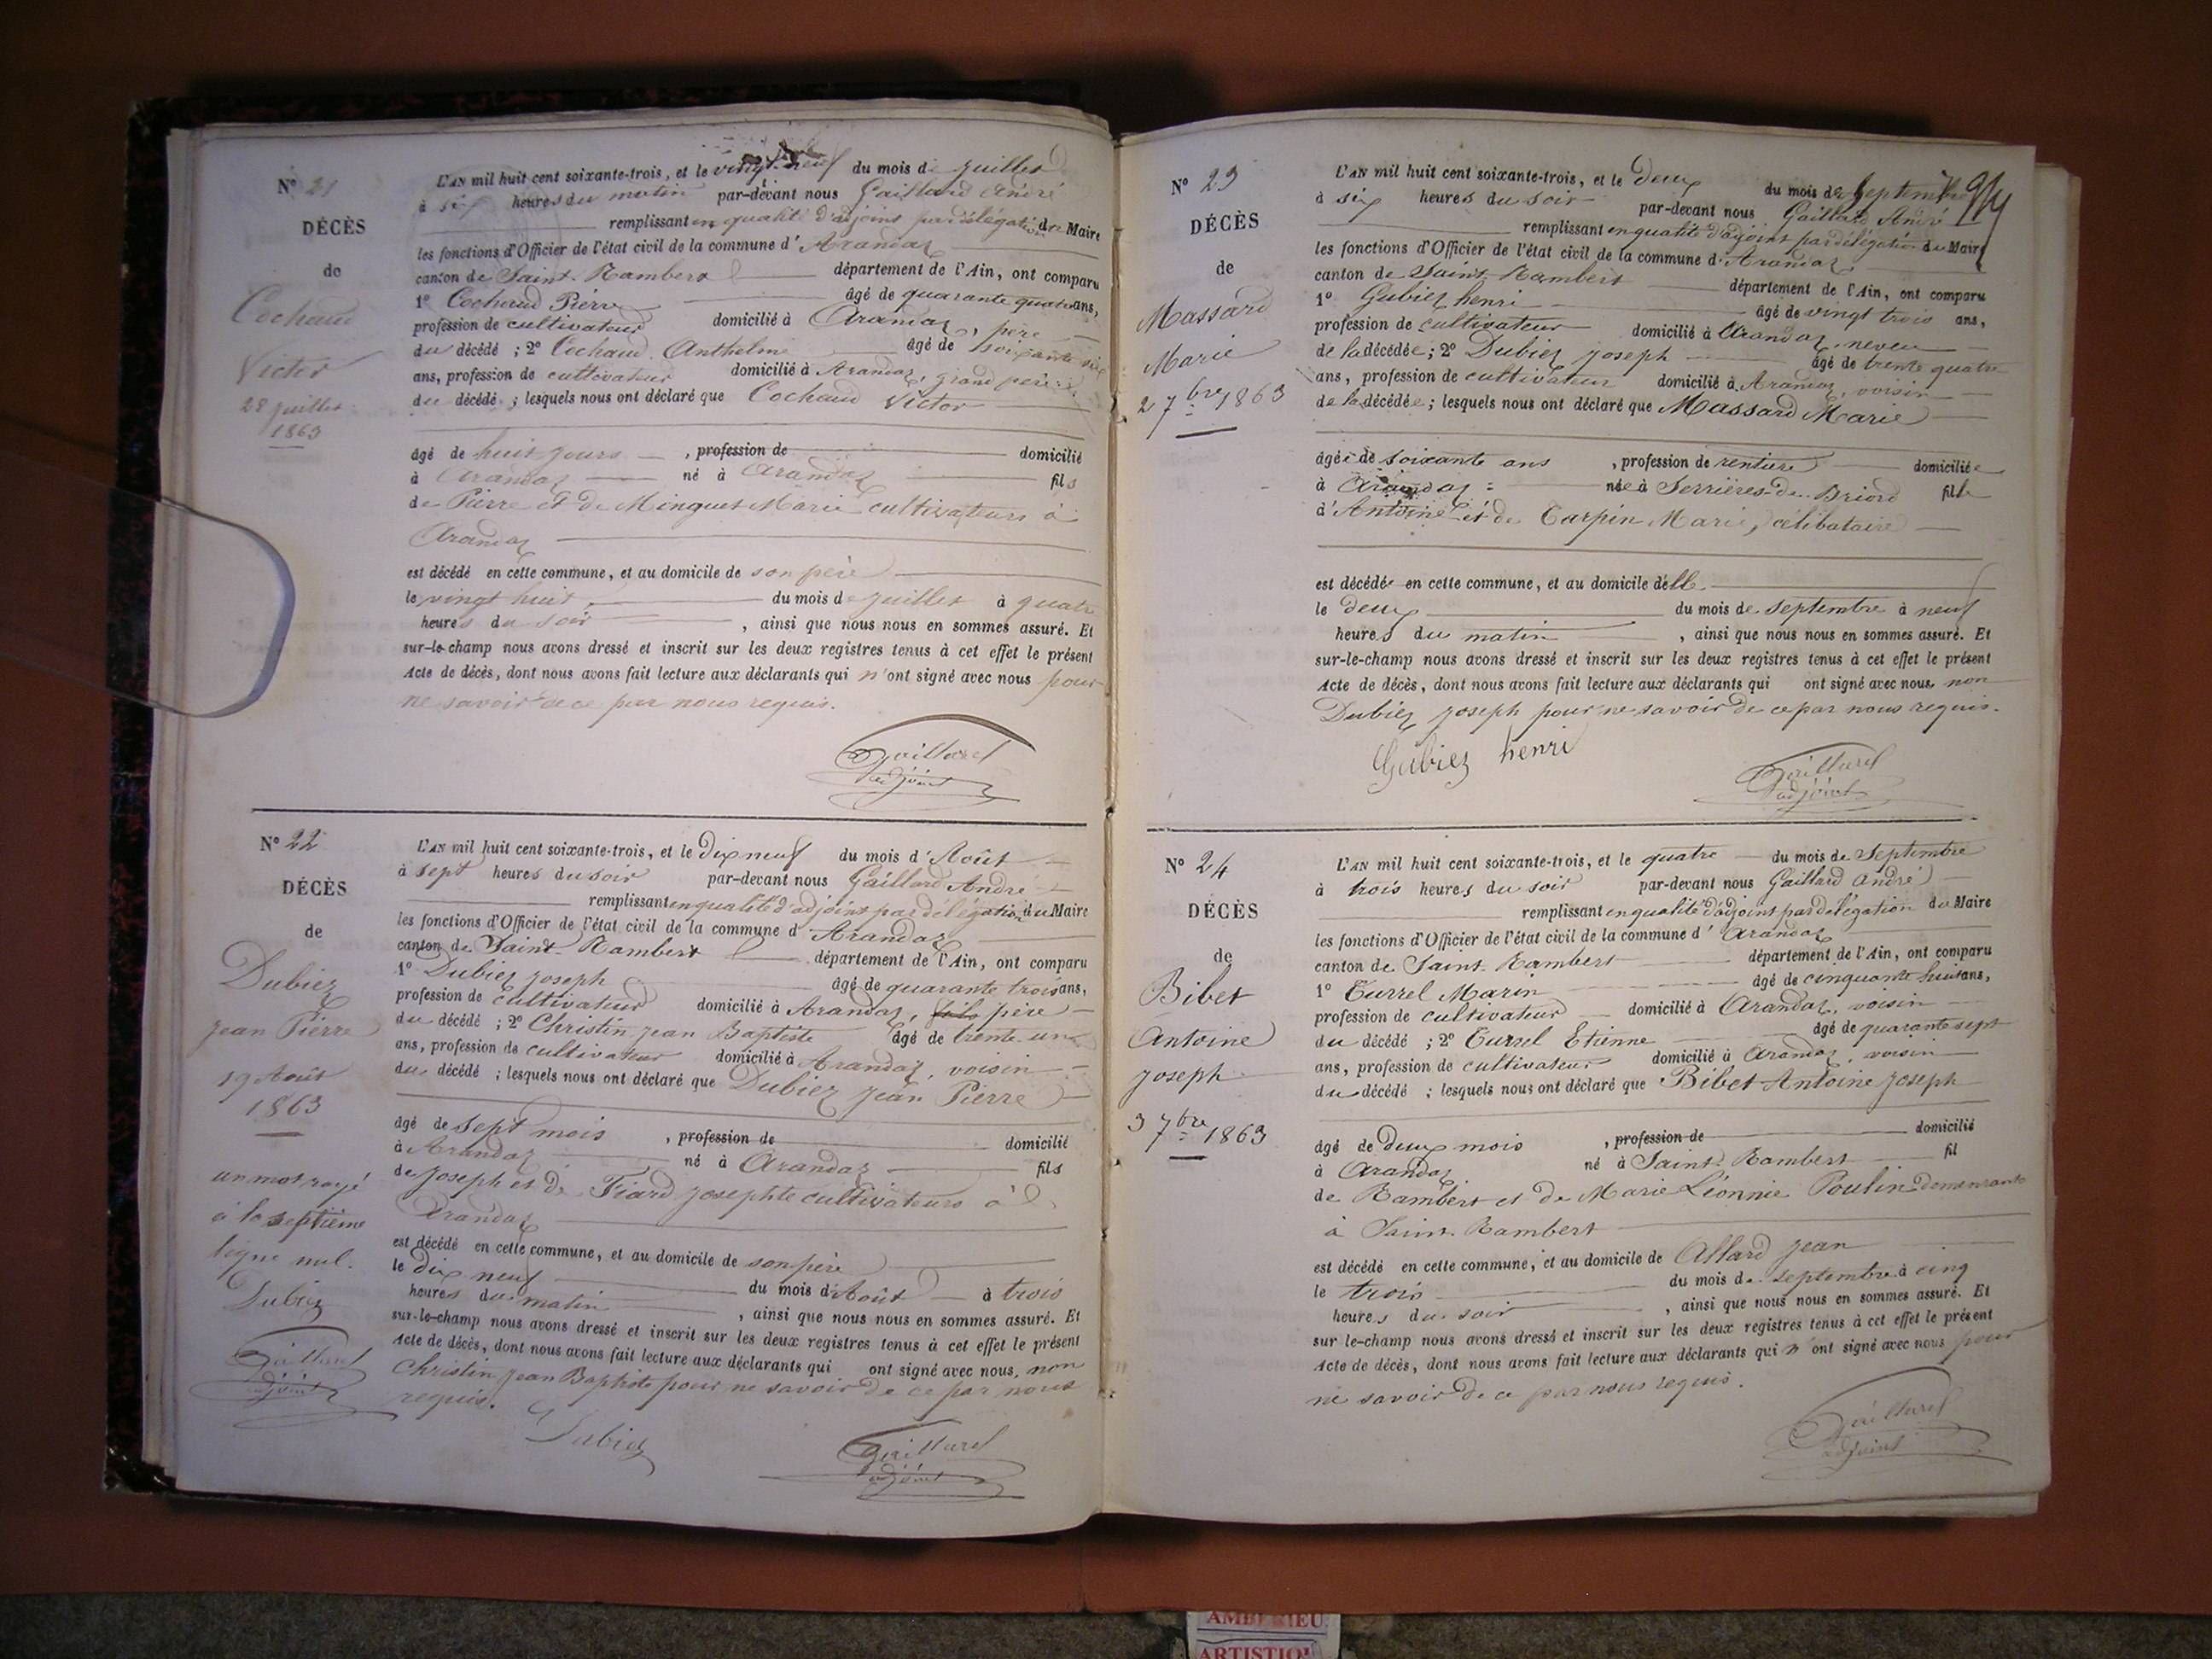 N° 21
DÉCÈS
de
Cochaud
Victor
28 juillet
1863
L'AN mil huit cent soixante-trois, et le vingt-neuf du mois de juillet
à six heures du matin par-devant nous Gaillard André
remplissant en qualité d'adjoint par délégation du Maire
les fonctions d'Officier de l'état civil de la commune d'Arandaz
canton de Saint-Rambert département de l'Ain, ont comparu
1° Cochaud Pierre âgé de quarante quatre ans,
profession de cultivateur domicilié à Arandaz, père
du décédé ; 2° Cochaud Anthelme âgé de soixante six
ans, profession de cultivateur domicilié à Arandaz, grand père
du décédé ; lesquels nous ont déclaré que Cochaud Victor
âgé de huit jours , profession de domicilié
à Arandaz né à Arandaz fils
de Pierre et de Minguet Marie cultivateurs à
Arandaz
est décédé en cette commune, et au domicile de son père
le vingt huit du mois de juillet à quatre
heures du soir , ainsi que nous nous en sommes assuré. Et
sur-le-champ nous avons dressé et inscrit sur les deux registres tenus à cet effet le présent
Acte de décès, dont nous avons fait lecture aux déclarants qui n'ont signé avec nous pour
ne savoir de ce par nous requis.
Gaillard
adjoint
N° 22
DÉCÈS
de
Dubiez
Jean Pierre
19 Août
1863
un mot rayé
à la septième
ligne nul.
Dubiez
Gaillard
adjoint
L'AN mil huit cent soixante-trois, et le Dix neuf du mois d'Août
à sept heures du soir par-devant nous Gaillard André
remplissant en qualité d'adjoint par délégation du Maire
les fonctions d'Officier de l'état civil de la commune d'Arandaz
canton de Saint-Rambert département de l'Ain, ont comparu
1° Dubiez Joseph âgé de quarante trois ans,
profession de cultivateur domicilié à Arandaz, fils père
du décédé ; 2° Christin Jean Baptiste âgé de trente-un
ans, profession de cultivateur domicilié à Arandaz, voisin
du décédé ; lesquels nous ont déclaré que Dubiez Jean Pierre
âgé de sept mois , profession de domicilié
à Arandaz né à Arandaz fils
de Joseph et de Tiard Josephte cultivateurs à
Arandaz
est décédé en cette commune, et au domicile de son père
le dix neuf du mois d'Août à trois
heures du matin , ainsi que nous nous en sommes assuré. Et
sur-le-champ nous avons dressé et inscrit sur les deux registres tenus à cet effet le présent
Acte de décès, dont nous avons fait lecture aux déclarants qui ont signé avec nous, non
Christin Jean Baptiste pour ne savoir de ce par nous
requis.
Dubiez
Gaillard
adjoint
N° 23
DÉCÈS
de
Massard
Marie
2 7bre 1863
L'AN mil huit cent soixante-trois, et le Deux du mois de Septembre
à six heures du soir par-devant nous Gaillard André
remplissant en qualité d'adjoint par délégation du Maire
les fonctions d'Officier de l'état civil de la commune d'Arandaz
canton de Saint-Rambert département de l'Ain, ont comparu
1° Gubiez henri âgé de vingt trois ans,
profession de cultivateur domicilié à Arandaz, neveu
de la décédée ; 2° Dubiez Joseph âgé de trente quatre
ans, profession de cultivateur domicilié à Arandaz, voisin
de la décédée ; lesquels nous ont déclaré que Massard Marie
âgée de soixante ans , profession de rentière domiciliée
à Arandaz née à Serrières-de-Briord fille
d'Antoine et de Carpin Marie, célibataire
est décédée en cette commune, et au domicile d'elle
le deux du mois de septembre à neuf
heures du matin , ainsi que nous nous en sommes assuré. Et
sur-le-champ nous avons dressé et inscrit sur les deux registres tenus à cet effet le présent
Acte de décès, dont nous avons fait lecture aux déclarants qui ont signé avec nous, non
Dubiez Joseph pour ne savoir de ce par nous requis.
Gubiez henri
Gaillard
adjoint
N° 24
DÉCÈS
de
Bibet
Antoine
Joseph
3 7bre 1863
L'AN mil huit cent soixante-trois, et le quatre du mois de Septembre
à trois heures du soir par-devant nous Gaillard André
remplissant en qualité d'adjoint par délégation du Maire
les fonctions d'Officier de l'état civil de la commune d'Arandaz
canton de Saint-Rambert département de l'Ain, ont comparu
1° Currel Marin âgé de cinquante huit ans,
profession de cultivateur domicilié à Arandaz, voisin
du décédé ; 2° Currel Etienne âgé de quarante sept
ans, profession de cultivateur domicilié à Arandaz, voisin
du décédé ; lesquels nous ont déclaré que Bibet Antoine Joseph
âgé de Deux mois , profession de domicilié
à Arandaz né à Saint-Rambert fil
de Rambert et de Marie Léonnie Poulin demeurants
à Saint-Rambert
est décédé en cette commune, et au domicile de Allard Jean
le trois du mois de septembre à cinq
heures du soir , ainsi que nous nous en sommes assuré. Et
sur le-champ nous avons dressé et inscrit sur les deux registres tenus à cet effet le présent
Acte de décès, dont nous avons fait lecture aux déclarants qui n'ont signé avec nous pour
ne savoir de ce par nous requis.
Gaillard
adjoint
AMBERIEU